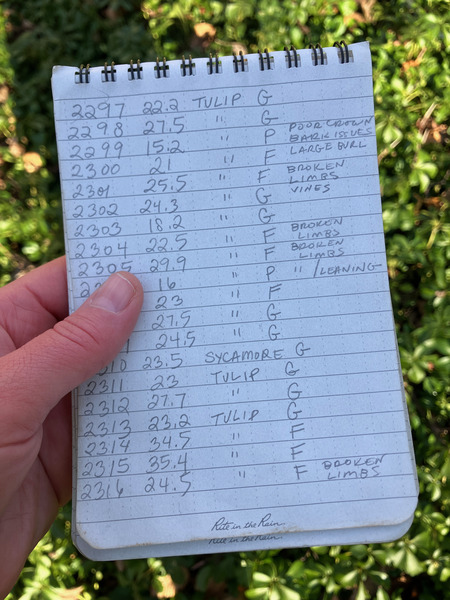 2297 22.2 TULIP G
2298 27.5 " G
2299 15.2 " P POOR CROWN
BARK ISSUES
2300 21 " F LARGE BURL
2301 25.5 " F BROKEN
LIMBS
2302 24.3 " G VINES
2303 18.2 " G
2304 22.5 " F BROKEN
LIMBS
2305 29.9 " F BROKEN
LIMBS
16 " P " / LEANING
23 " F
27.5 " G
24.5 " G
310 23.5 SYCAMORE G
2311 23 TULIP G
2312 27.7 " G
2313 23.2 TULIP G
2314 34.5 " F
2315 35.4 " F
2316 24.5 " F BROKEN
LIMBS
Rite in the Rain
Rite in the Rain